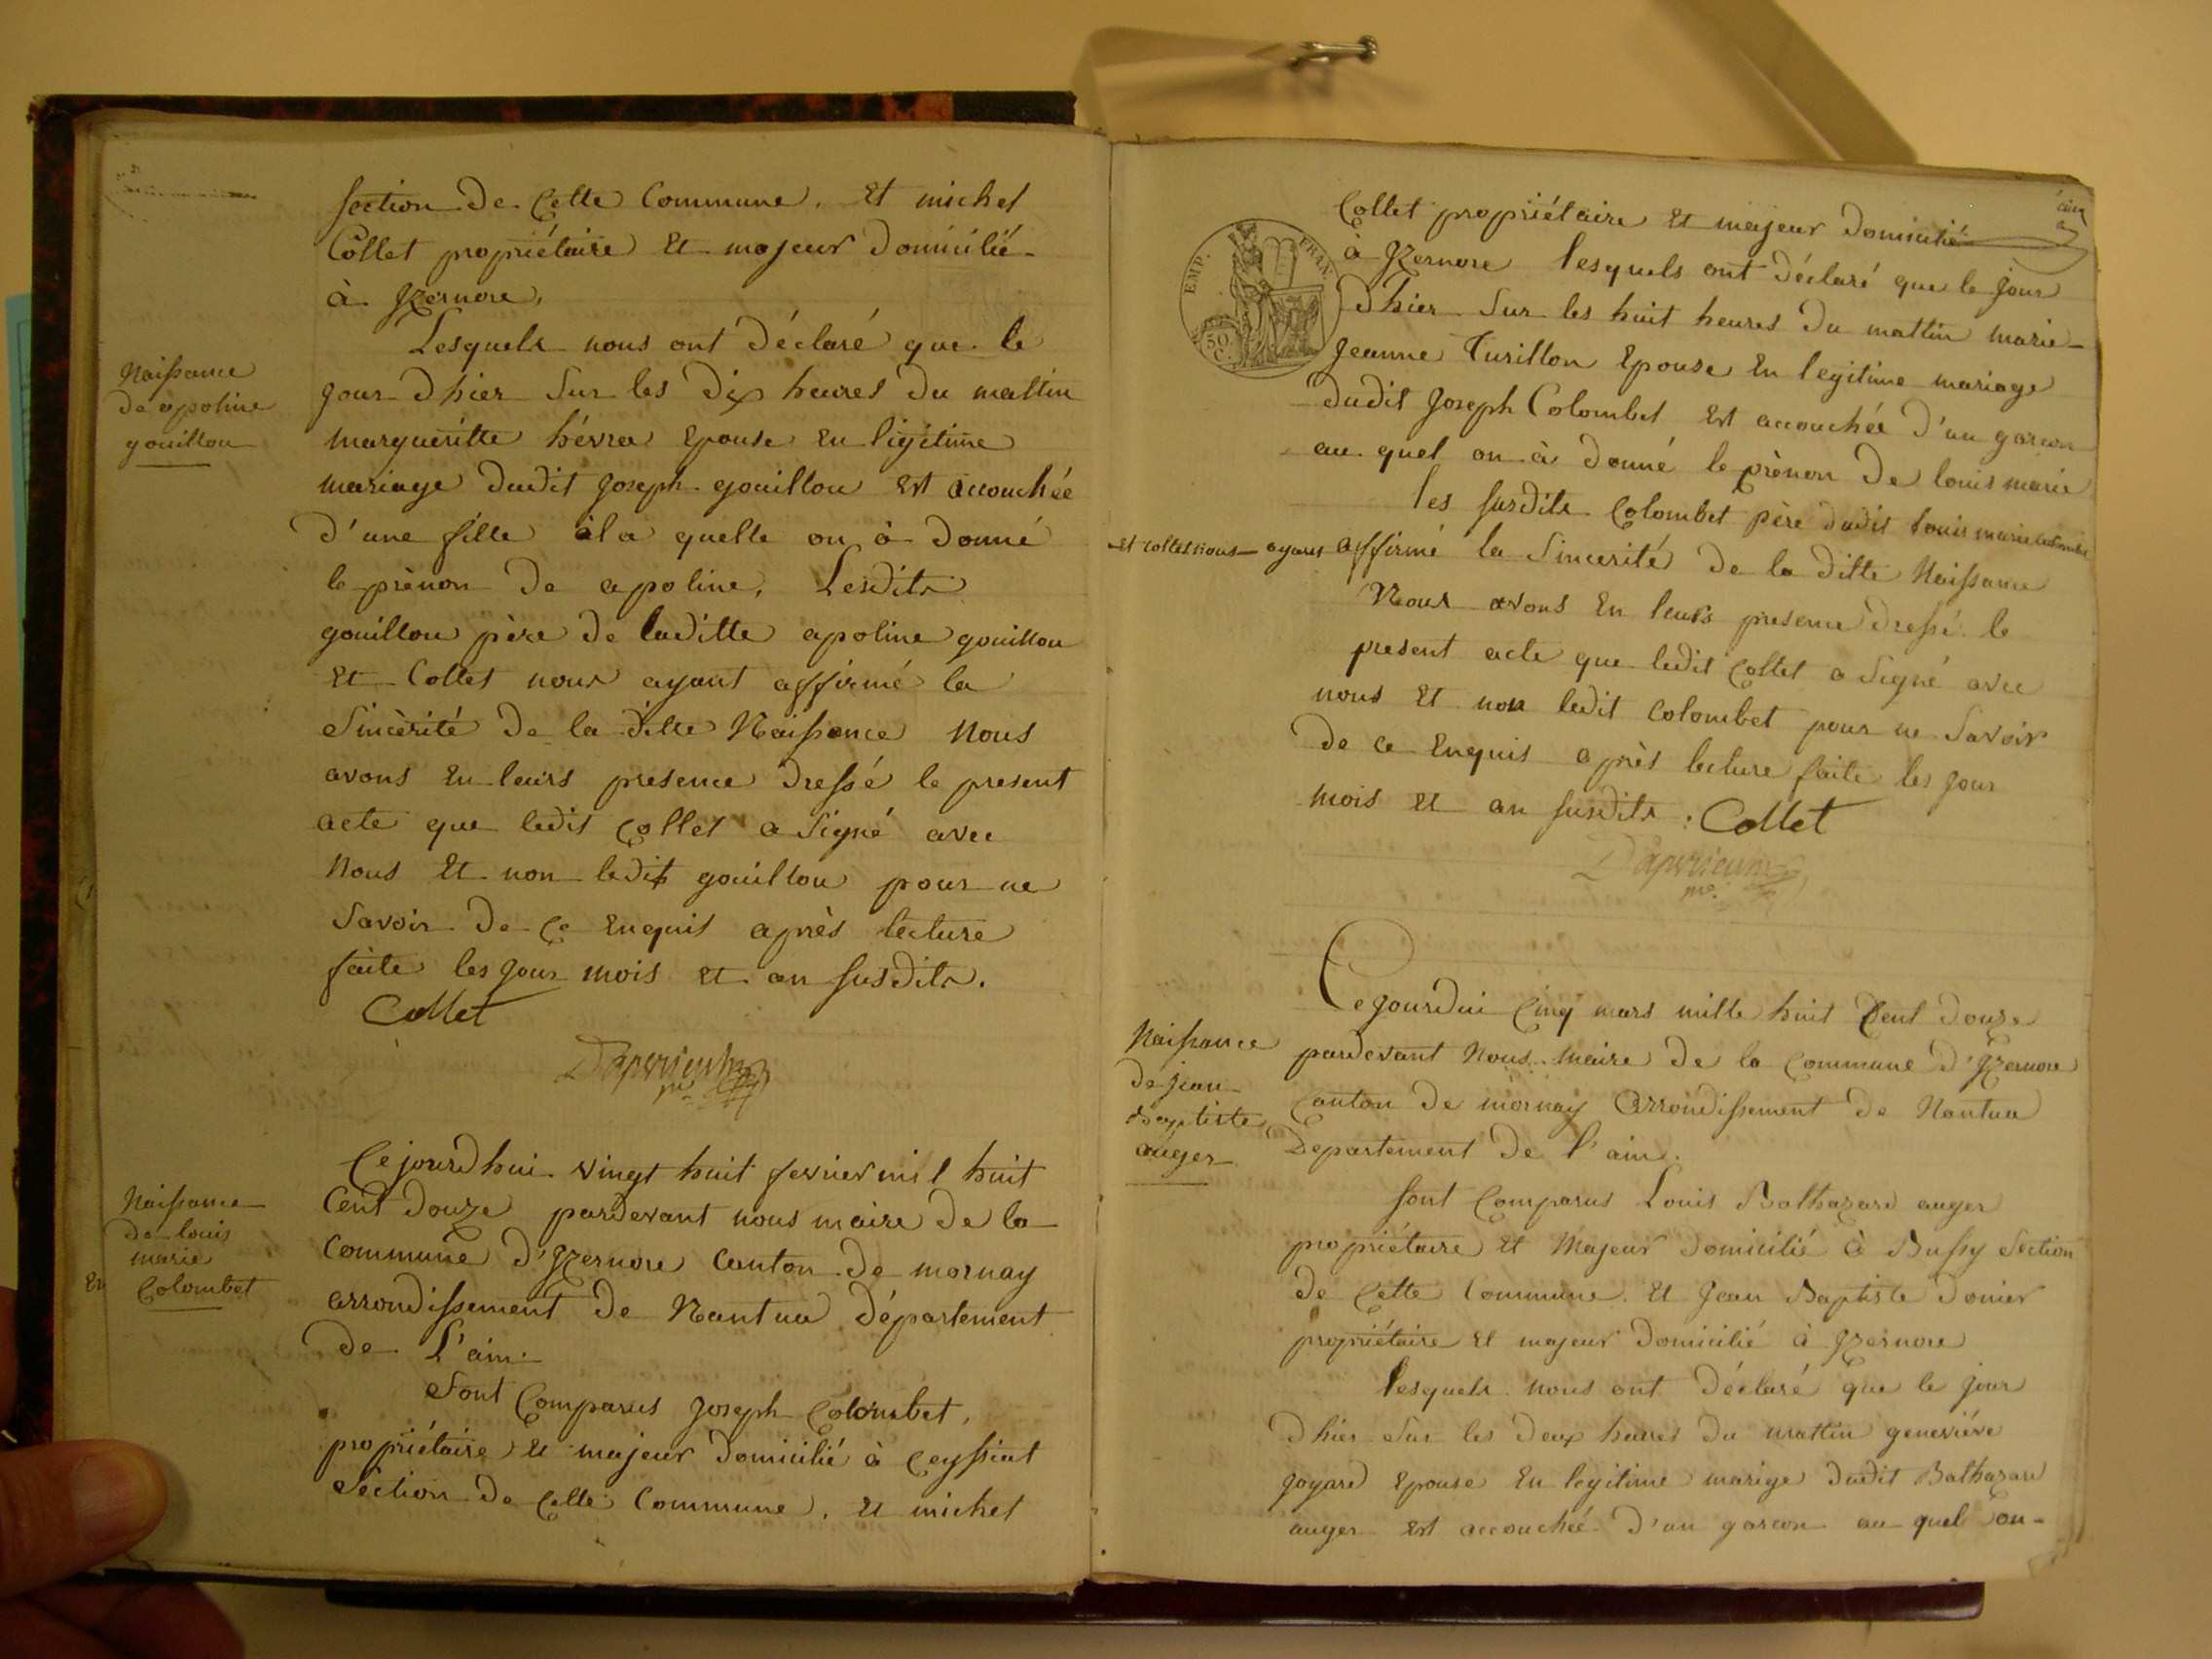 section de Cette Commune. Et michel
Collet propriétaire Et majeur domicilié
à Yzernore,
Naissance
de apoline
gouillou
Lesquels nous ont déclaré que le
jour dhier Sur les dix heures du mattin
margueritte hévra Epouse En ligitime
mariage dudit Joseph gouillou Est accouchée
d'une fille àla quelle on à donné
le prènon de apoline, Lesdits
gouillou père de laditte apoline gouillou
Et Collet nous ayant affirmé la
Sincèrité de la ditte Naissance Nous
avons En leurs presence dressé le present
acte que ledit Collet a Signé avec
Nous Et non ledit gouillou pour ne
Savoir de ce Enquis après lecture
faite les jour mois Et an susdits.
Collet
Naissance
de louis
marie
Colombet
Cejourdhui vingt huit fevrier mil huit
Cent douze pardevant nous maire de la
Commune d'Yzernore Canton de mornay
arrondissement de Nantua département
de L'ain.
Sont Comparus Joseph Colombet,
propriétaire Et majeur domicilié à Ceyssiat
Section de Cette Commune, Et michel
cinq
EMP. FRAN.
50 C.
Collet propriétaire Et majeur domicilié
à Yzernore lesquels ont déclaré que le jour
dhier Sur les huit heures du mattin marie
Jeanne Turillon Epouse En legitime mariage
dudit Joseph Colombet Est accouchée d'un garcon
au quel on à donné le prènon de louis marie
les susdits Colombet père dudit louis marie Colombet
Et Collet nous ayant affirmé la Sincerité de la ditte Naissance
Nous avons En leurs presence dressé le
present acte que ledit Collet a Signé avec
nous Et non ledit Colombet pour ne Savoir
de ce Enquis après lecture faite les jour
mois Et an susdits. Collet
Naissance
de jean
Baptiste
auger
Cejourdui Cinq mars mille huit Cent douze
pardevant Nous maire de la Commune d'Yzernore
Canton de mornay Arrondissement de Nantua
Departement de l'ain.
sont Comparus Louis Balthazard auger
propriétaire Et Majeur domicilié à Bussy Section
de Cette Commune. Et Jean Baptiste donier
propriétaire Et majeur domicilié à Yzernore
lesquels nous ont déclaré que le jour
dhier Sur les deux heures du mattin geneviéve
goyard Epouse En legitime marige dudit Balthazard
auger Est accouchée d'un garcon au quel on